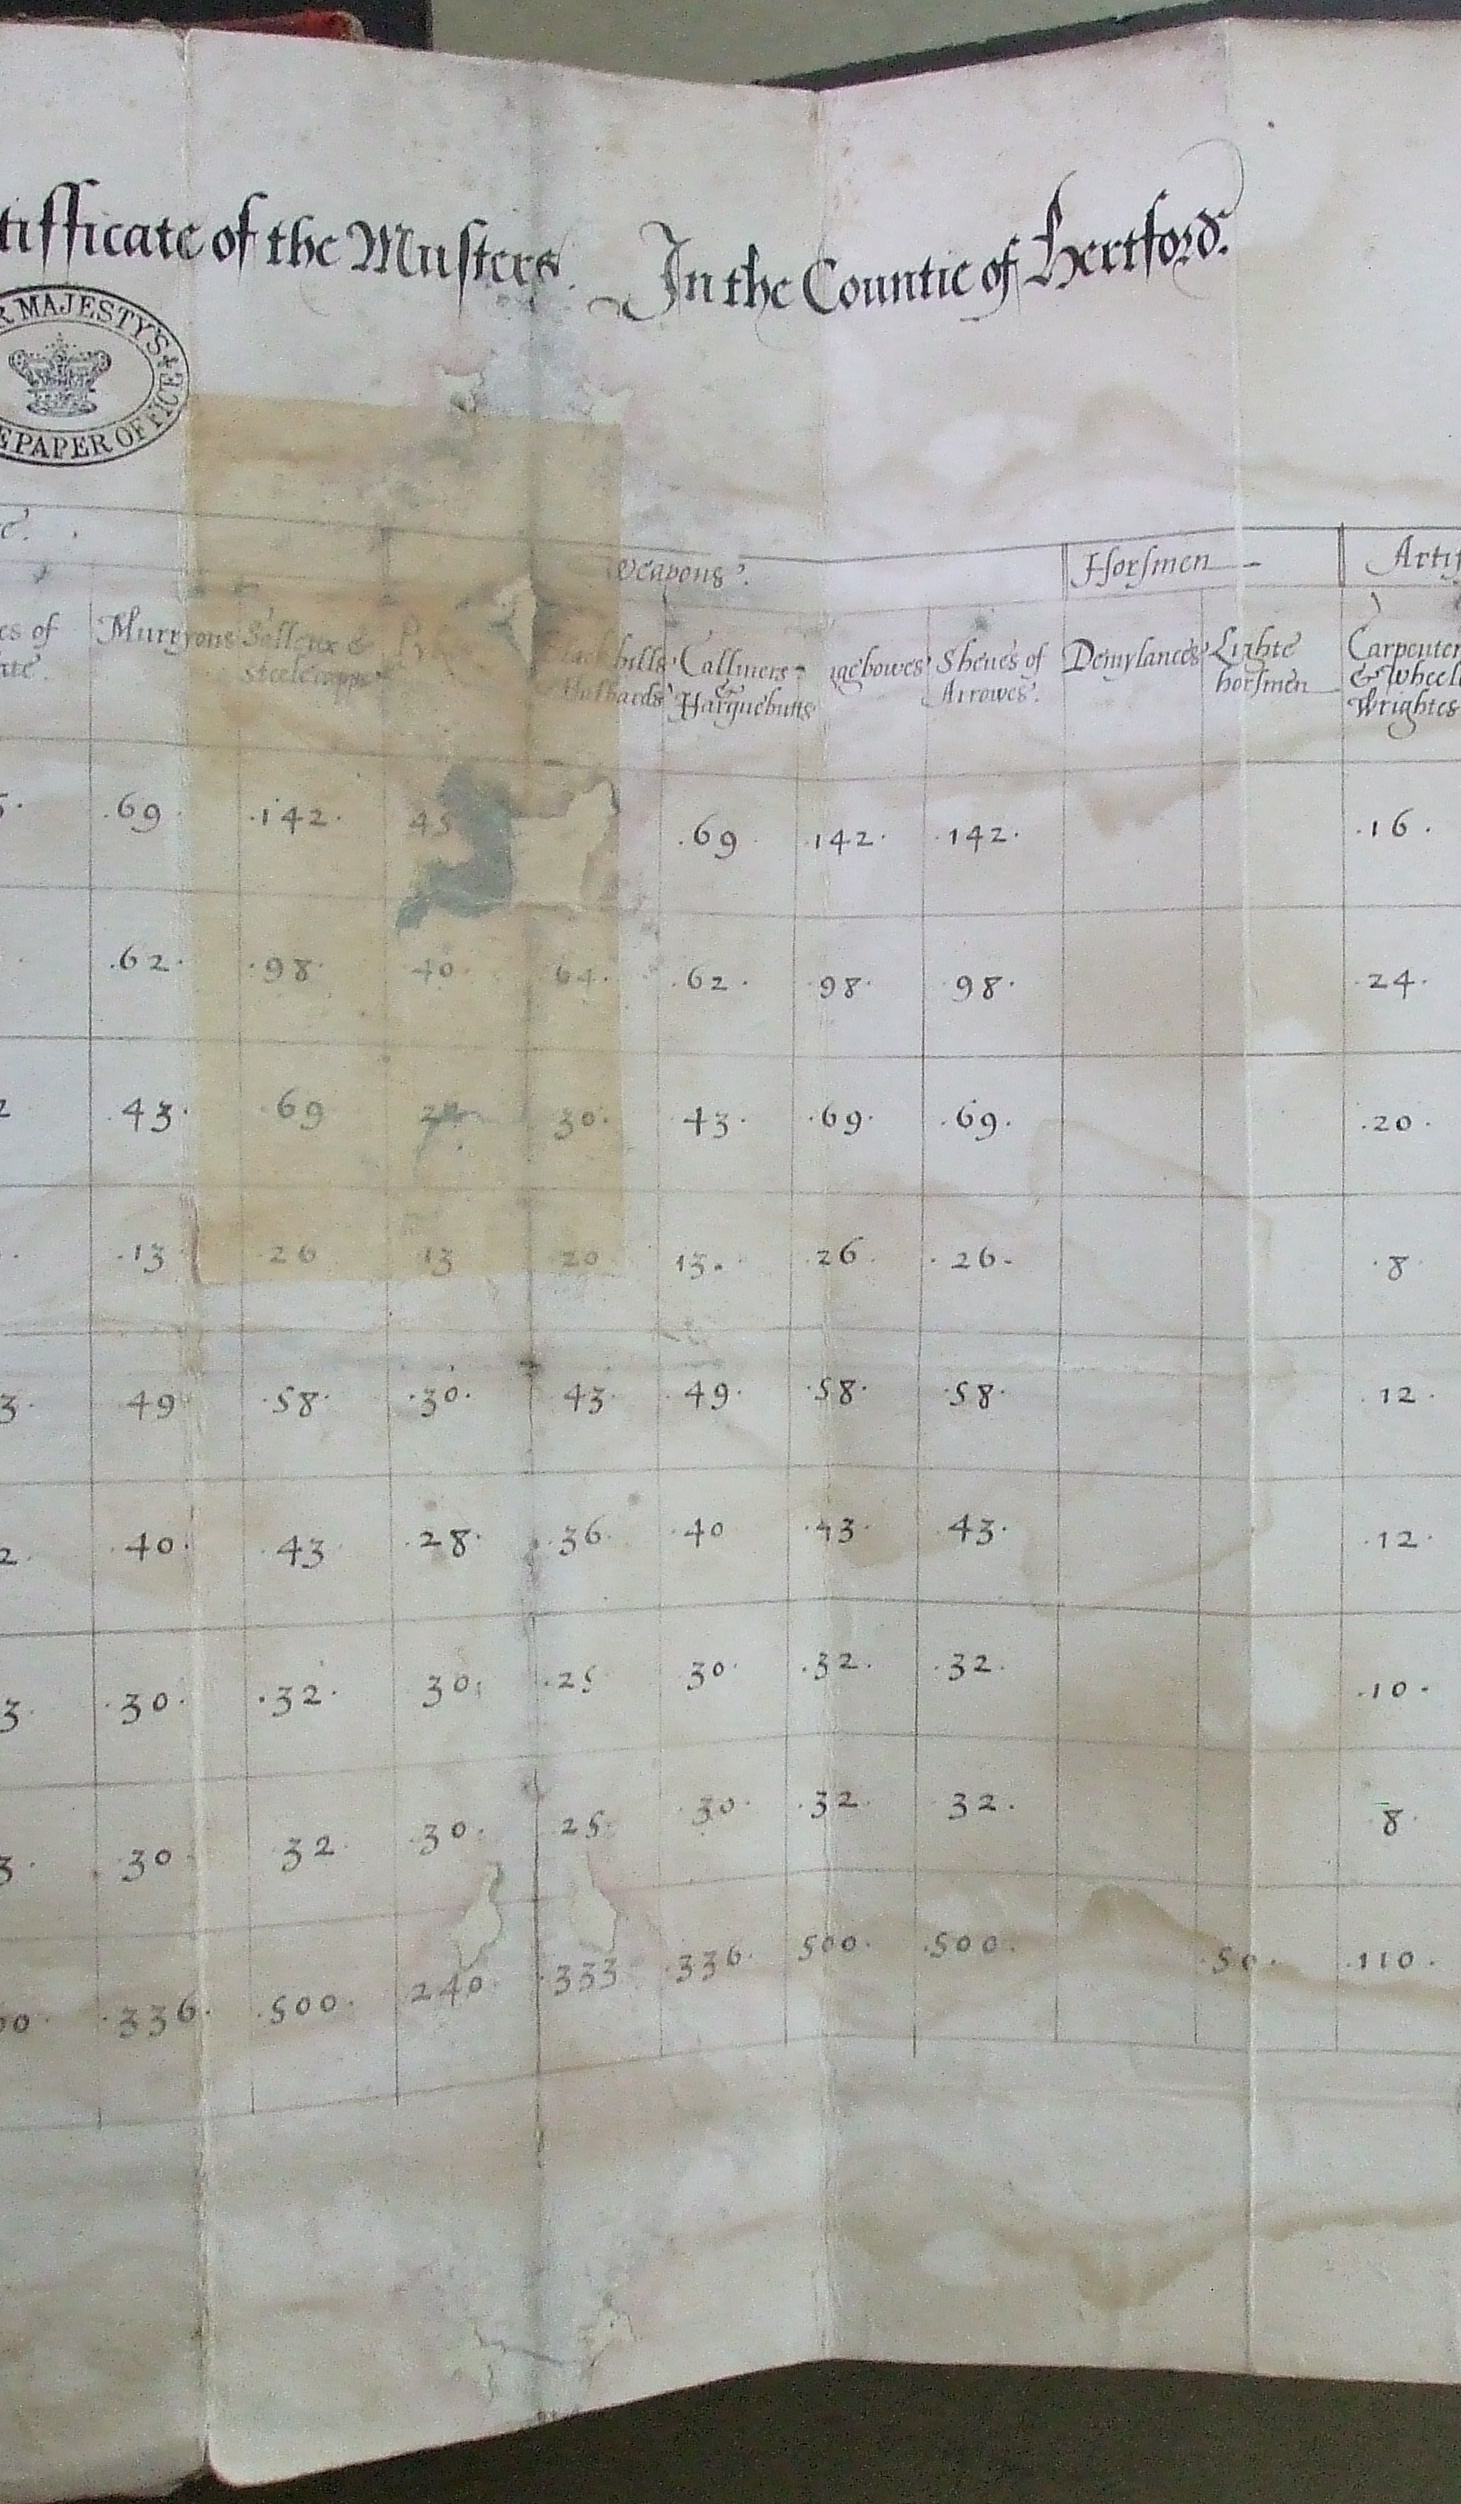 tifficate of the Musters. In the Countie of Hertford.
R MAJESTY'S
E PAPER OFFICE
Weapons. Horsmen Artif
es of Murryons Sallettx & Blackbills Callivers gebowes Sheues of Demylances Lighte Carpenter
ate. steelecapps Holbards & Harquebutts Arrowes. horsmen & Wheel
Wrightes
5. .69. .142. 45 .69. 142. .142. .16.
.62. .98. 40. 64. .62. 98. 98. .24.
2 .43. .69 30. .43. .69. .69. .20.
.13 26 13 20 13. .26. .26. .8.
3. 49 .58. .30. 43. .49. .58. .58. .12.
2. .40. .43 .28. .36. .40 .43. 43. .12.
3. .30. .32. 30. .25 30. .32. .32. .10.
3. .30 32. 30. 25. .30. .32. 32. 8.
00. .336. .500. 240. .333 .336. 500. .500. .50. .110.